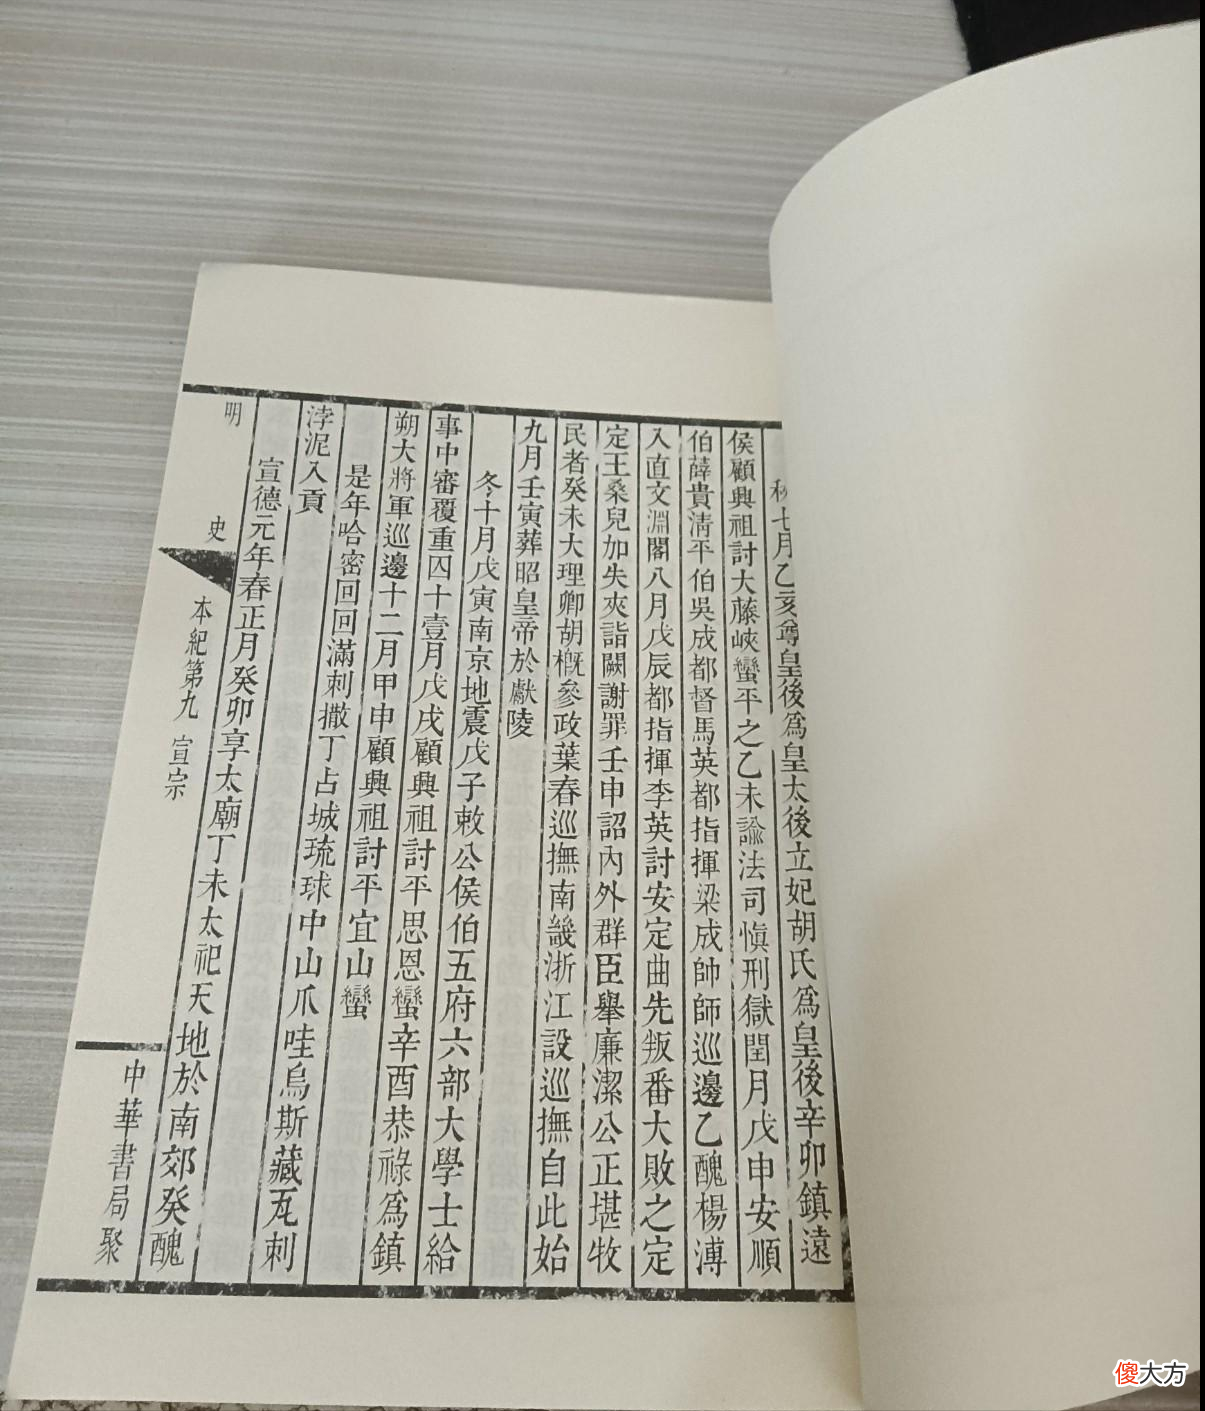 秋七月乙亥尊皇後爲皇太後立妃胡氏爲皇後辛卯鎮遠
侯顧興祖討大藤峽蠻平之乙未諭法司慎刑獄閏月戊申安順
伯薛貴清平伯吳成都督馬英都指揮梁成帥師巡邊乙醜楊溥
入直文淵閣八月戊辰都指揮李英討安定曲先叛番大敗之定
定王桑兒加失夾詣闕謝罪壬申詔內外群臣舉廉潔公正堪牧
民者癸未大理卿胡概參政葉春巡撫南畿浙江設巡撫自此始
九月壬寅葬昭皇帝於獻陵
冬十月戊寅南京地震戊子敕公侯伯五府六部大學士給
事中審覆重囚十壹月戊戌顧興祖討平思恩蠻辛酉恭祿爲鎮
朔大將軍巡邊十二月甲申顧興祖討平宜山蠻
是年哈密回回滿刺撒丁占城琉球中山爪哇烏斯藏瓦刺
浡泥入貢
宣德元年春正月癸卯享太廟丁未太祀天地於南郊癸醜
明史
本紀第九 宣宗
中華書局聚
傻大方